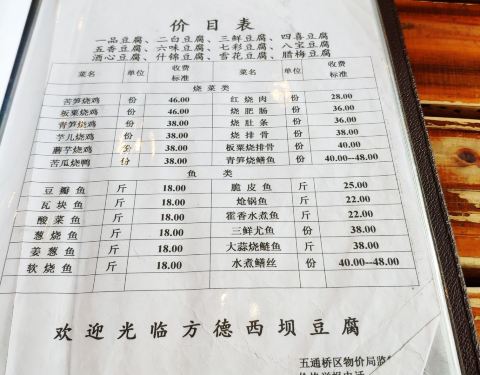 价目表
一品豆腐、二白豆腐、三鲜豆腐、四喜豆腐
五香豆腐、六味豆腐、七彩豆腐、八宝豆腐
酒心豆腐、什锦豆腐、雪花豆腐、腊梅豆腐
菜名 单位 收费标准 菜名 单位 收费标准
烧菜类
苦笋烧鸡 份 46.00 红烧肉 份 28.00
板栗烧鸡 份 46.00 烧肥肠 份 36.00
青笋烧鸡 份 38.00 烧肚条 份 36.00
芋儿烧鸡 份 38.00 烧排骨 份 38.00
蘑芋烧鸡 份 38.00 板栗烧排骨 份 40.00
苦瓜烧鸭 份 38.00 青笋烧鳝鱼 份 40.00--48.00
鱼类
豆瓣鱼 斤 18.00 脆皮鱼 斤 25.00
瓦块鱼 斤 18.00 炝锅鱼 斤 22.00
酸菜鱼 斤 18.00 霍香水煮鱼 斤 22.00
葱烧鱼 斤 18.00 三鲜尤鱼 份 38.00
姜葱鱼 斤 18.00 大蒜烧鲢鱼 斤 38.00
软烧鱼 斤 18.00 水煮鳝丝 份 40.00--48.00
欢迎光临方德西坝豆腐
五通桥区物价局监